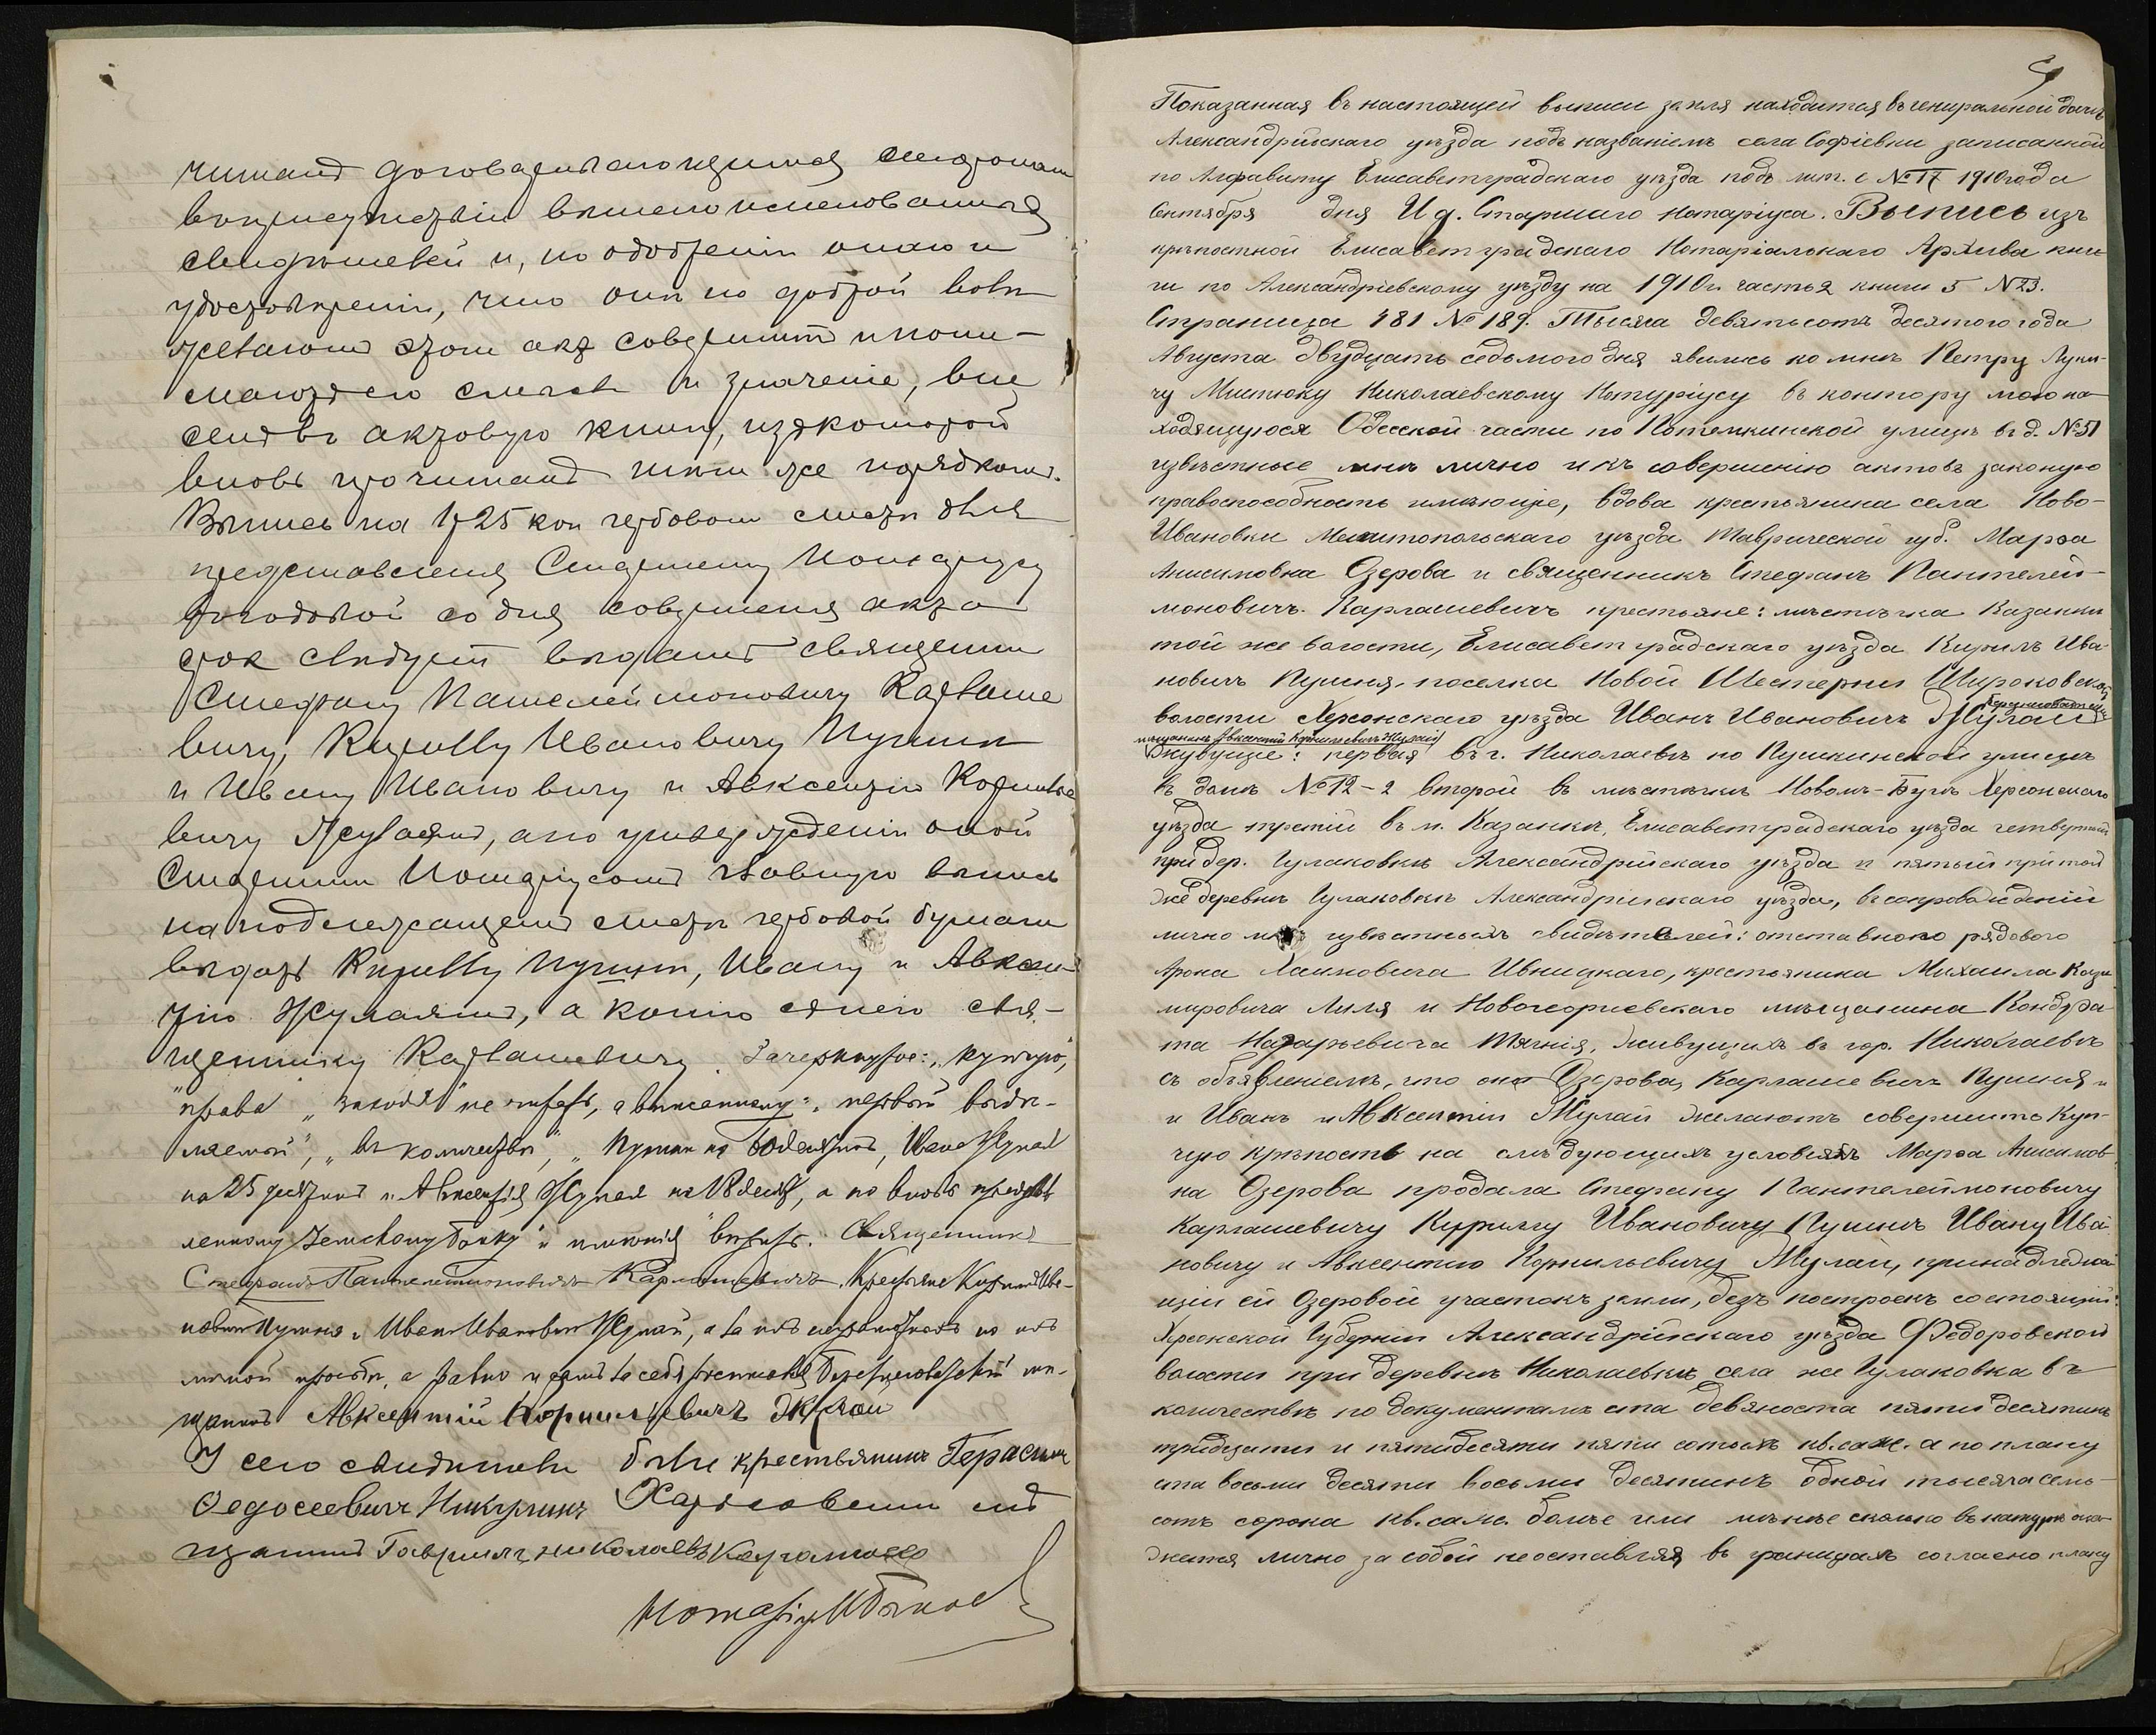 читанъ договаривающимся сторонамъ
въ присутствіи вышепоименованныхъ
свидѣтелей и, по одобреніи онаго и
удостовѣреніи, что они по доброй волѣ
желаютъ этотъ актъ совершить и пони-
маютъ его смыслъ и значеніе, вне
сенъ въ актовую книгу, изъ которой
вновь прочитанъ тѣмъ же порядкомъ.
Выпись на 1 р 25 коп гербовомъ листѣ для
представленія Старшему Нотаріусу
въ годовой со дня совершенія акта
срокъ слѣдуетъ выдать священнику
Стефану Пантелеймоновичу Карлаше
вичу, Кириллу Ивановичу Пушнѣ
и Ивану Ивановичу и Авксентію Корнилье
вичу Жулаямъ, а по утвержденіи оной
Старшимъ Нотаріусомъ главную выпись
на подлежащемъ листѣ гербовой бумаги
выдать Кириллу Пушнѣ, Ивану и Авксен-
тію Жулаямъ, а копію съ нея свя-
щеннику Карлашевичу. Зачеркнутое: „купчую",
„права" не читать, а вписанному: „первый выдѣ-
ляемой", „въ количествѣ", Иванъ Жулай
на 25 десятинъ и Авксентія Жулая на 18 десят, а по вновь
Земскому банку" и вѣрить. Священникъ
Стефанъ Пантелеймоновичъ Карлашевичъ. Крестьяне Кириллъ Ива-
новичъ Пушня и Иванъ Ивановичъ Жулай, а за нихъ неграмотныхъ по ихъ
личной просьбѣ, а равно и самъ за себя росписался Березнеговатскій мѣ-
щанинъ Авксентій Корнильевичъ Жулай
У сего свидѣтели были крестьянинъ Герасимъ
Ѳедосеевичъ Никулинъ мѣ
щанинъ Гавріилъ Николаевъ
Нотаріусъ
Показанная въ настоящей выписи земля находится въ генеральной дачѣ
Александрійскаго уѣзда подъ названіемъ села Софіевки записанной
по Алфавиту Елисаветградскаго уѣзда подъ лит. с № 17 1910 года
Сентября дня И д. Старшаго Нотаріуса. Выпись изъ
крѣпостной Елисаветградскаго Нотаріальнаго Архива кни
ги по Александріевскому уѣзду на 1910 г. часть 2 книги 5 № 23.
Страница 181 № 189. Тысяча девятьсотъ десятого года
Августа двудцать седьмого дня явились ко мнѣ Петру Луки-
чу Мистюку Николаевскому Нотуріусу въ контору мою на
ходящуюся Одесской части по Потемкинской улицѣ въ д. № 51
извѣстные мнѣ лично и къ совершенію актовъ законую
правоспособность имѣющіе, вдова крестьянина села Ново-
Ивановки Мелитопольскаго уѣзда Таврической губ. Марѳа
Анисимовна Озерова и священникъ Стефанъ Пантелей-
моновичъ Карлашевичъ крестьяне: мѣстечка Казанки
той же волости, Елисаветградскаго уѣзда Кирилъ Ива
новичъ Пушня, поселка Новой Шестерни Широковской
волости Херсонскаго уѣзда Иванъ Ивановичъ Жулай
мѣщанинъ Авксентій Корнильевичъ Жулай
живущіе: первая въ г. Николаевѣ по Пушкинской улицѣ
въ домѣ № 12-2 второй въ мѣстечкѣ Новомъ-Бугѣ Херсонскаго
уѣзда третій въ м. Казанкѣ, Елисаветградскаго уѣзда четвертый
при дер. Гулаковкѣ Александрійскаго уѣзда и пятый при той
же деревнѣ Гулаковкѣ Александрійскаго уѣзда, въ сопровожденіи
лично мнѣ извѣстныхъ свидѣтелей: отставного рядового
Арона Хаимовича Ивницкаго, крестьянина Михаила Кази
мировича Лиля и Новогеоргіевскаго мѣщанина Кондра
та Назарьевича Тягнія, живущихъ въ гор. Николаевѣ
съ объявленіемъ, что они Озерова, Карлашевичъ Пушня и
и Иванъ и Авксентій Жулай желаютъ совершить куп-
чую крѣпость на слѣдующихъ условіяхъ Марѳа Анисимов
на Озерова продала Стефану Пантелеймоновичу
Карлашевичу Кириллу Ивановичу Пушнѣ Ивану Ива
новичу и Авксентію Корнильевичу Жулай, принадлежа
щій ей Озеровой участокъ земли, безъ построекъ состоящій:
Херсонской Губерніи Александрійскаго уѣзда Федоровской
волости при деревнѣ Николаевкѣ села же Гулаковка въ
количествѣ по документамъ ста девяноста пяти десятинъ
тридцати и пятидесяти пяти сотыхъ кв. саж. а по плану
ста восьми десяти восьми десятинъ одной тысяча семь-
сотъ сорока кв. саж. болѣе или мѣнѣе сколько въ натурѣ ока
жется лично за собой не оставляя въ границахъ согласно плану